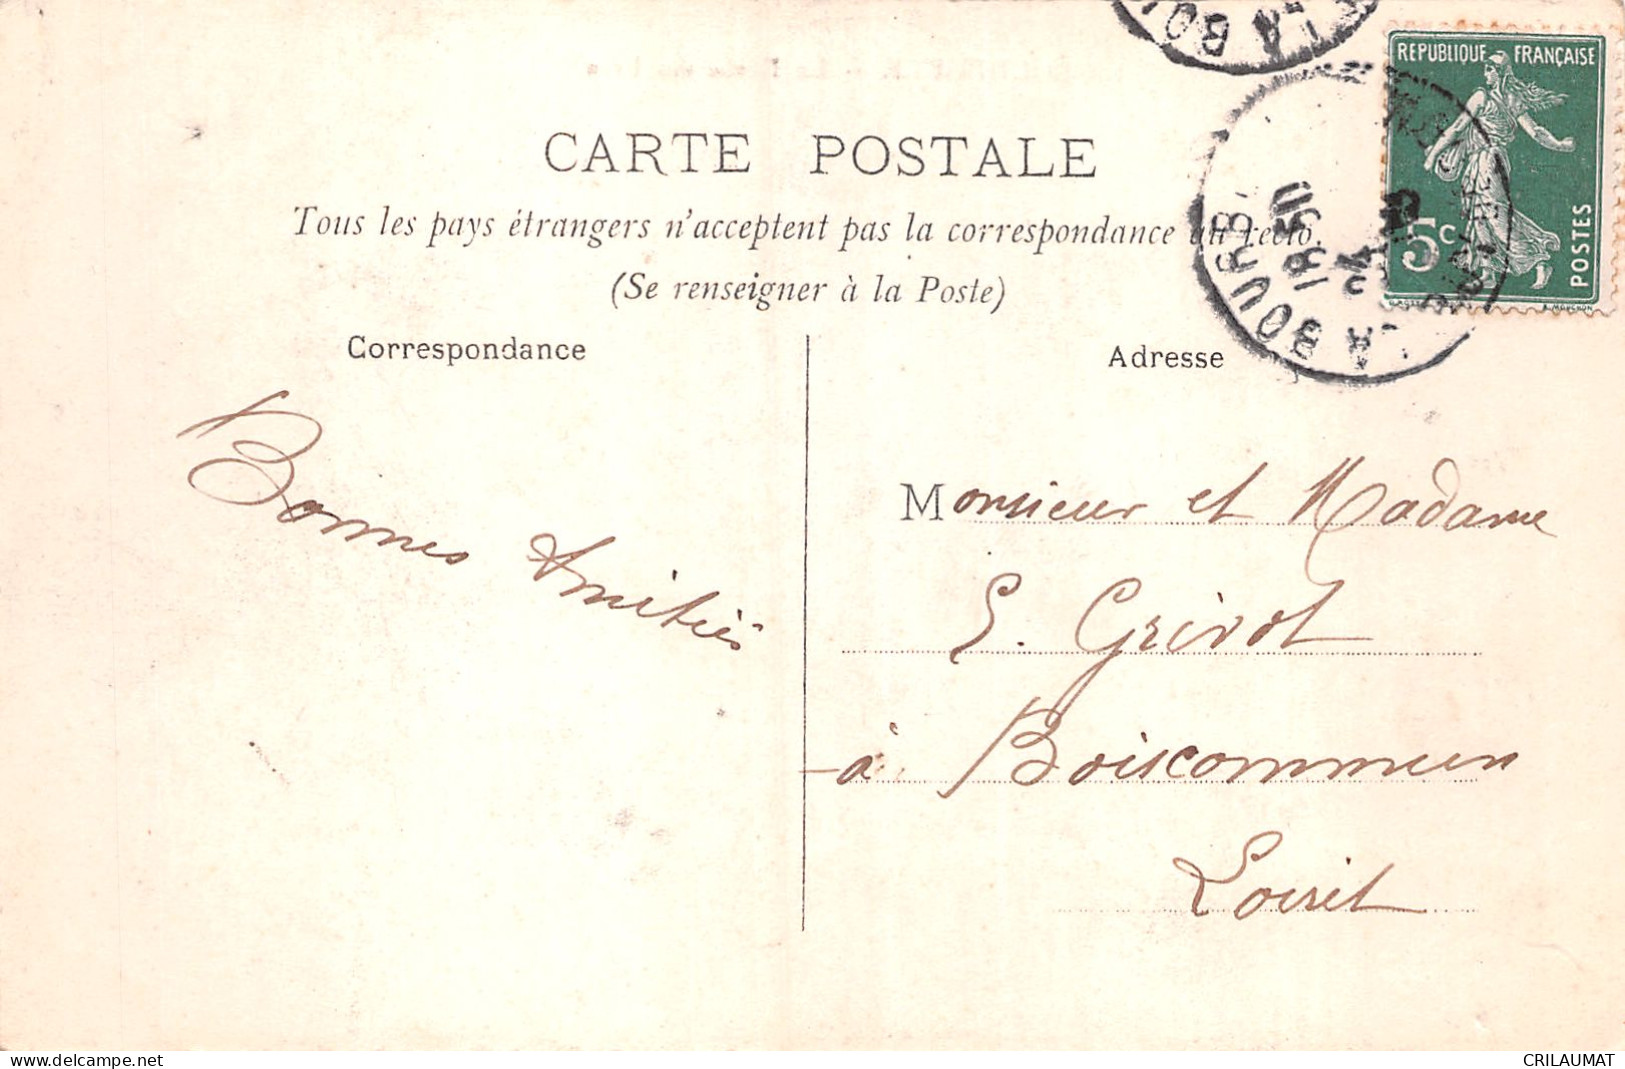 LA BOU
REPUBLIQUE FRANÇAISE
5c
POSTES
LA BOURB
18 50
24
CARTE POSTALE
Tous les pays étrangers n'acceptent pas la correspondance au recto.
(Se renseigner à la Poste)
Correspondance
Adresse
Bonnes Amitiés
Monsieur et Madame
E. Grivot
à Boiscommun
Loiret
www.delcampe.net
CRILAUMAT